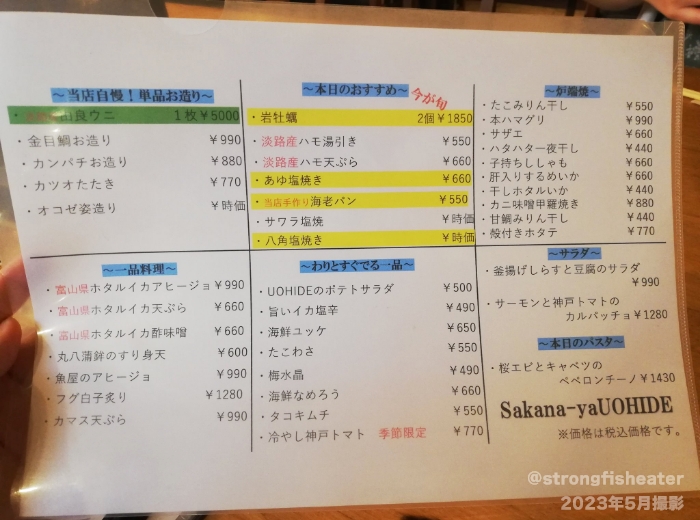 ～当店自慢！単品お造り～
由良ウニ 1枚￥5000
・金目鯛お造り ￥990
・カンパチお造り ￥880
・カツオたたき ￥770
・オコゼ姿造り ￥時価
～本日のおすすめ～ 今が旬
・岩牡蠣 2個￥1850
・淡路産ハモ湯引き ￥550
・淡路産ハモ天ぷら ￥660
・あゆ塩焼き ￥660
・当店手作り海老パン ￥550
・サワラ塩焼 ￥時価
・八角塩焼き ￥時価
～炉端焼～
・たこみりん干し ￥550
・本ハマグリ ￥990
・サザエ ￥660
・ハタハタ一夜干し ￥440
・子持ちししゃも ￥660
・肝入りするめいか ￥660
・干しホタルいか ￥440
・カニ味噌甲羅焼き ￥880
・甘鯛みりん干し ￥440
・殻付きホタテ ￥770
～一品料理～
・富山県ホタルイカアヒージョ￥990
・富山県ホタルイカ天ぷら ￥660
・富山県ホタルイカ酢味噌 ￥660
・丸八蒲鉾のすり身天 ￥600
・魚屋のアヒージョ ￥990
・フグ白子炙り ￥1280
・カマス天ぷら ￥990
～わりとすぐでる一品～
・UOHIDEのポテトサラダ ￥500
・旨いイカ塩辛 ￥490
・海鮮ユッケ ￥650
・たこわさ ￥550
・梅水晶 ￥490
・海鮮なめろう ￥660
・タコキムチ ￥550
・冷やし神戸トマト 季節限定 ￥770
～サラダ～
・釜揚げしらすと豆腐のサラダ
￥990
・サーモンと神戸トマトの
カルパッチョ￥1280
～本日のパスタ～
・桜エビとキャベツの
ペペロンチーノ￥1430
Sakana-yaUOHIDE
※価格は税込価格です。
@strongfisheater
2023年5月撮影